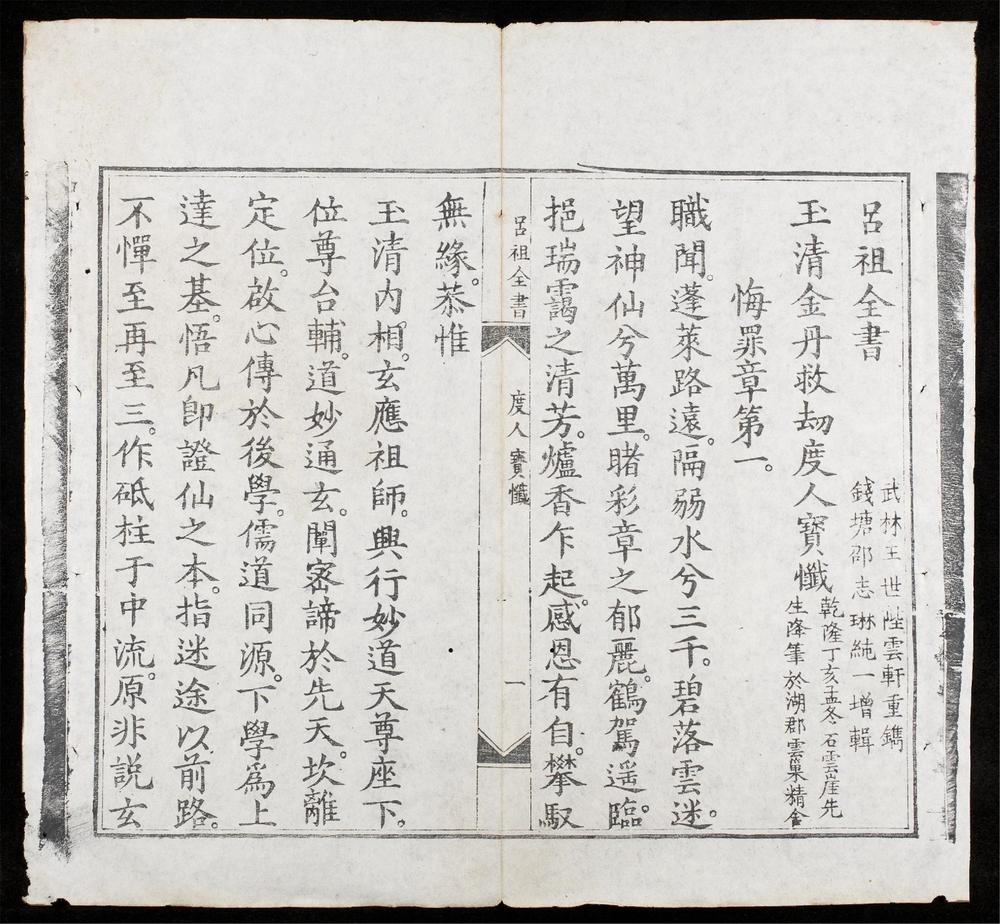 呂祖全書
武林王世陞雲軒重鐫
錢塘邵志琳純一增輯
玉清金丹救劫度人寶懺
乾隆丁亥孟冬石雲崖先
生降筆於湖郡雲巢精舍
悔罪章第一。
職聞。蓬萊路遠。隔弱水兮三千。碧落雲迷。
望神仙兮萬里。睹彩章之郁麗。鶴駕遥臨。
挹瑞靄之清芳。爐香乍起。感恩有自。攀馭
呂祖全書 度人寶懺 一
無緣。恭惟
玉清内相。玄應祖師。興行妙道天尊座下。
位尊台輔。道妙通玄。闡密諦於先天。坎離
定位。啟心傳於後學。儒道同源。下學爲上
達之基。悟凡即證仙之本。指迷途以前路。
不憚至再至三。作砥柱于中流。原非説玄